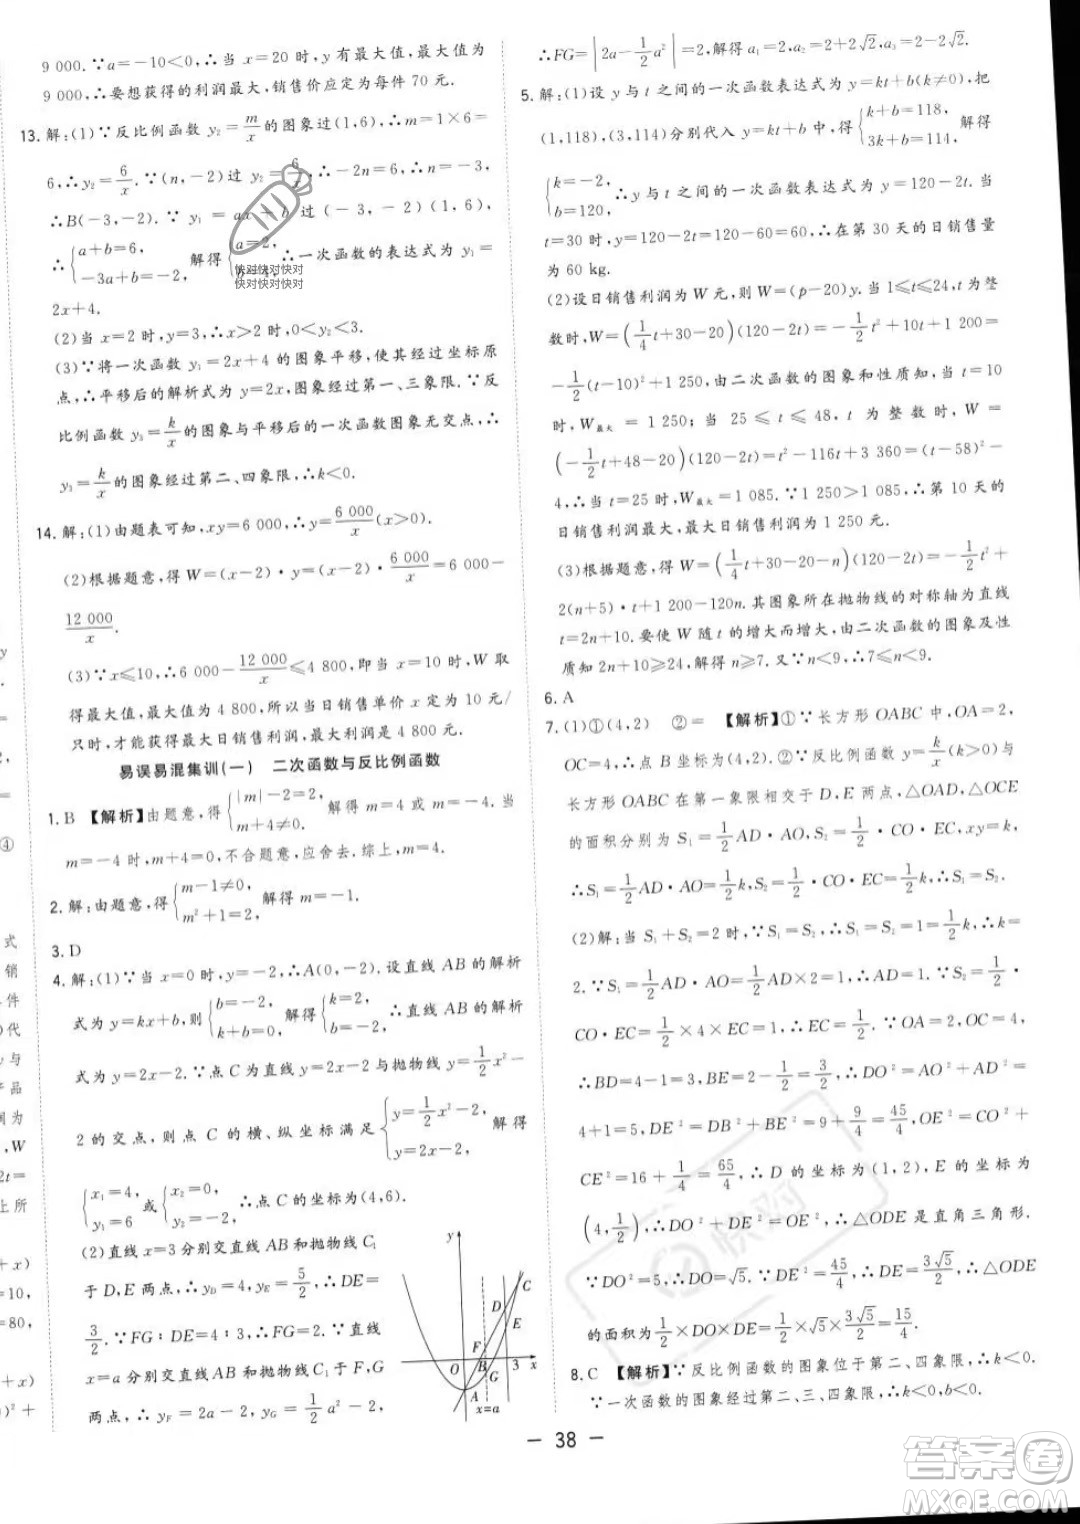 9 000. ∵a=−10<0,∴当 x=20 时,y 有最大值,最大值为
9 000,∴要想获得的利润最大,销售价应定为每件 70 元.
13. 解:(1)∵反比例函数 y₂=m/x 的图象过(1,6),∴m=1×6=
6,∴y₂=6/x. ∵(n,−2)过 y₂=6/x,∴−2n=6,∴n=−3,
∴B(−3,−2). ∵ y₁ = ax + b 过(−3,−2)(1,6),
∴{a+b=6, −3a+b=−2, 解得{a=2, b=4, ∴一次函数的表达式为 y₁=
2x+4.
(2)当 x=2 时,y₂=3,∴x>2 时,0<y₂<3.
(3)∵将一次函数 y₁=2x+4 的图象平移,使其经过坐标原
点,∴平移后的解析式为 y=2x,图象经过第一、三象限.∵反
比例函数 y₃=k/x 的图象与平移后的一次函数图象无交点,∴
y₃=k/x 的图象经过第二、四象限,∴k<0.
14. 解:(1)由题表可知,xy=6 000,∴y=6 000/x(x>0).
(2)根据题意,得 W=(x−2)·y=(x−2)·6 000/x=6 000−
12 000/x.
(3)∵x≤10,∴6 000−12 000/x≤4 800,即当 x=10 时,W 取
得最大值,最大值为 4 800,所以当日销售单价 x 定为 10 元/
只时,才能获得最大日销售利润,最大利润是 4 800 元.
易误易混集训(一) 二次函数与反比例函数
1. B 【解析】由题意,得{|m|−2=2, m+4≠0, 解得 m=4 或 m=−4. 当
m=−4 时,m+4=0,不合题意,应舍去.综上,m=4.
2. 解:由题意,得{m−1≠0, m²+1=2, 解得 m=−1.
3. D
4. 解:(1)∵当 x=0 时,y=−2,∴A(0,−2). 设直线 AB 的解析
式为 y=kx+b,则{b=−2, k+b=0, 解得{k=2, b=−2, ∴直线 AB 的解析
式为 y=2x−2. ∵点 C 为直线 y=2x−2 与抛物线 y=1/2x²−
2 的交点,则点 C 的横、纵坐标满足{y=1/2x²−2, y=2x−2, 解得
{x₁=4, y₁=6 或{x₂=0, y₂=−2, ∴点 C 的坐标为(4,6).
(2)直线 x=3 分别交直线 AB 和抛物线 C₁
于 D,E 两点,∴y_D=4,y_E=5/2,∴DE=
3/2. ∵FG∶DE=4∶3,∴FG=2. ∵直线
x=a 分别交直线 AB 和抛物线 C₁ 于 F,G
两点,∴y_F=2a−2,y_G=1/2a²−2,
y C D E F O B G 3 x A x=a
∴FG=|2a−1/2a²|=2,解得 a₁=2,a₂=2+2√2,a₃=2−2√2.
5. 解:(1)设 y 与 t 之间的一次函数表达式为 y=kt+b(k≠0),把
(1,118),(3,114)分别代入 y=kt+b 中,得{k+b=118, 3k+b=114, 解得
{k=−2, b=120, ∴y 与 t 之间的一次函数表达式为 y=120−2t. 当
t=30 时,y=120−2t=120−60=60,∴在第 30 天的日销售量
为 60 kg.
(2)设日销售利润为 W 元,则 W=(p−20)y. 当 1≤t≤24,t 为整
数时,W=(1/4t+30−20)(120−2t)=−1/2t²+10t+1 200=
−1/2(t−10)²+1 250,由二次函数的图象和性质知,当 t=10
时,W最大=1 250;当 25≤t≤48,t 为整数时,W=
(−1/2t+48−20)(120−2t)=t²−116t+3 360=(t−58)²−
4,∴当 t=25 时,W最大=1 085. ∵1 250>1 085,∴第 10 天的
日销售利润最大,最大日销售利润为 1 250 元.
(3)根据题意,得 W=(1/4t+30−20−n)(120−2t)=−1/2t²+
2(n+5)·t+1 200−120n. 其图象所在抛物线的对称轴为直线
t=2n+10. 要使 W 随 t 的增大而增大,由二次函数的图象及性
质知 2n+10≥24,解得 n≥7. 又∵n<9,∴7≤n<9.
6. A
7. (1)①(4,2) ②= 【解析】①∵长方形 OABC 中,OA=2,
OC=4,∴点 B 的坐标为(4,2). ②∵反比例函数 y=k/x(x>0)与
长方形 OABC 在第一象限相交于 D,E 两点,△OAD,△OCE
的面积分别为 S₁=1/2AD·AO,S₂=1/2·CO·EC,k=1,
∴S₁=1/2AD·AO=1/2k,S₂=1/2·CO·EC=1/2k,∴S₁=S₂.
(2)解:当 S₁+S₂=2 时,∵S₁=S₂,∴S₁=S₂=1=1/2k,∴k=
2. ∵S₁=1/2AD·AO=1/2AD×2=1,∴AD=1. ∵S₂=1/2·
CO·EC=1/2×4×EC=1,∴EC=1/2. ∵OA=2,OC=4,
∴BD=4−1=3,BE=2−1/2=3/2,∴DO²=AO²+AD²=
4+1=5,DE²=DB²+BE²=9+9/4=45/4,OE²=CO²+
CE²=16+1/4=65/4,∴D 的坐标为(1,2),E 的坐标为
(4,1/2),∴DO²+DE²=OE²,∴△ODE 是直角三角形.
∵DO²=5,∴DO=√5. ∵DE²=45/4,∴DE=3√5/2,∴△ODE
的面积为1/2×DO×DE=1/2×√5×3√5/2=15/4.
8. C 【解析】∵反比例函数的图象位于第二、四象限,∴k<0.
∵一次函数的图象经过第二、三、四象限,∴k<0,b<0.
− 38 −
快对快对快对
快对快对快对
快对
答案圈
MXQE.COM